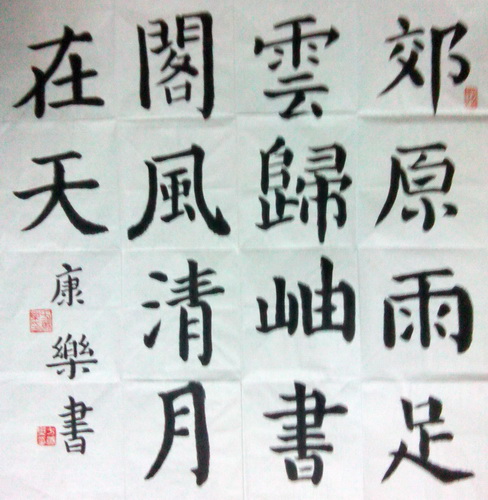 郊原雨足
雲歸岫書
閣風清月
在天
康樂書